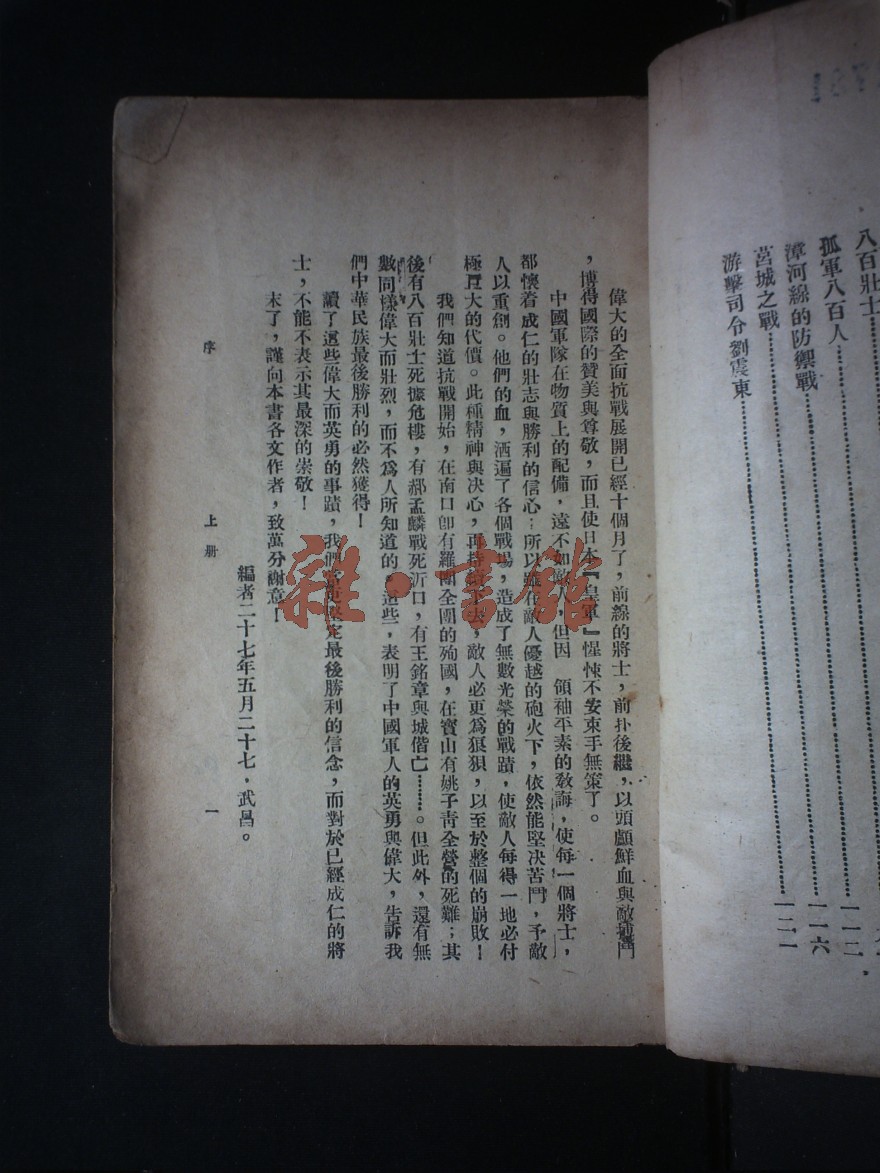 八百壯士
孤軍八百人……一一二
漳河線的防禦戰……一一六
莒城之戰……一二一
游擊司令劉震東
偉大的全面抗戰展開已經十個月了，前線的將士，前扑後繼，以頭顱鮮血與敵搏鬥
，博得國際的贊美與尊敬，而且使日本『皇軍』惶悚不安束手無策了。
中國軍隊在物質上的配備，遠不如敵人，但因　領袖平素的敎誨，使每一個將士，
都懷着成仁的壯志與勝利的信心；所以雖在敵人優越的砲火下，依然能堅决苦鬥，予敵
人以重創。他們的血，洒遍了各個戰塲，造成了無數光榮的戰蹟，使敵人每得一地必付
極巨大的代價。此種精神與决心，再持續下去，敵人必更爲狼狽，以至於整個的崩敗！
我們知道抗戰開始，在南口卽有羅團全團的殉國，在寶山有姚子靑全營的死難；其
後有八百壯士死據危樓，有郝孟麟戰死沂口，有王銘章與城偕亡……。但此外，還有無
數同樣偉大而壯烈，而不爲人所知道的。這些，表明了中國軍人的英勇與偉大，告訴我
們中華民族最後勝利的必然獲得！
讀了這些偉大而英勇的事蹟，我們當能堅定最後勝利的信念，而對於已經成仁的將
士，不能不表示其最深的崇敬！
末了，謹向本書各文作者，致萬分謝意！
編者二十七年五月二十七，武昌。
序　上册　一
雜·書館